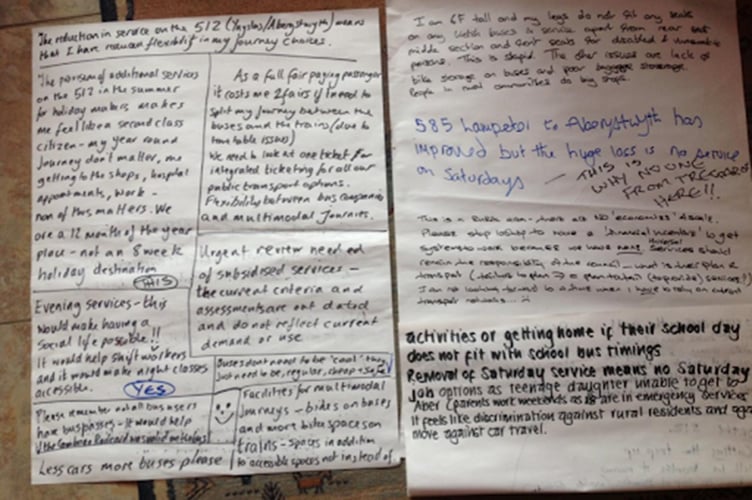 The reduction in service on the 512 (Ynyslas/Aberystwyth) means
that I have reduced flexibility in my journey choices.
The provision of additional services
on the 512 in the summer
for holiday makers makes
me feel like a second class
citizen - my year round
Journey don't matter, me
getting to the shops, hospital
appointments, work -
non of this matters. We
are a 12 month of the year
place - not an 8 week
holiday destination
THIS
Evening services - this
would make having a
social life possible!!
It would help shift workers
and it would make night classes
accessible.
YES
Please remember not all bus users
have bus passes - it would help
if the Cambrian Railcard was valid on the buses
Less cars more buses please
As a full fair paying passenger
it costs me 2 fairs if I need to
split my journey between the
buses and the trains (due to
time table issues)
We need to look at one ticket for
integrated ticketing for all our
public transport options.
Flexibility between bus companies
and multimodal journeys.
Urgent review needed
of subsidised services -
the current criteria and
assessments are out dated
and do not reflect current
demand or use
Buses dont need to be 'cool' they
just need to be, regular, cheap + safe!
Facilities for multimodal
journeys - bikes on buses
and more bike spaces on
trains - spaces in addition
to accessible spaces not instead of
I am 6F tall and my legs do not fit any seats
on any Welsh buses & service apart from rear
middle section and front seats for disabled & vulnerable
persons. This is stupid. The other issues are lack of
bike storage on buses and poor luggage storage
People in rural communities do big shops.
585 Lampeter to Aberystwyth has
improved but the huge loss is no service
on Saturdays
THIS IS
WHY NO ONE
FROM TREGARON
HERE!!
This is a Rural area - there are NO 'economies' of scale.
Please stop looking to have a 'financial incentive' to get
systems to work because we have none. Universal Services should
remain the responsibility of the council - what is their plan &
transport
I am not looking forward to a time when I have to rely on current
transport networks... :(
activities or getting home if their school day
does not fit with school bus timings
Removal of Saturday service means no Saturday
job options as teenage daughter unable to get to
Aber (parents work weekends as are in emergency services
It feels like discrimination against rural residents and
move against car travel.